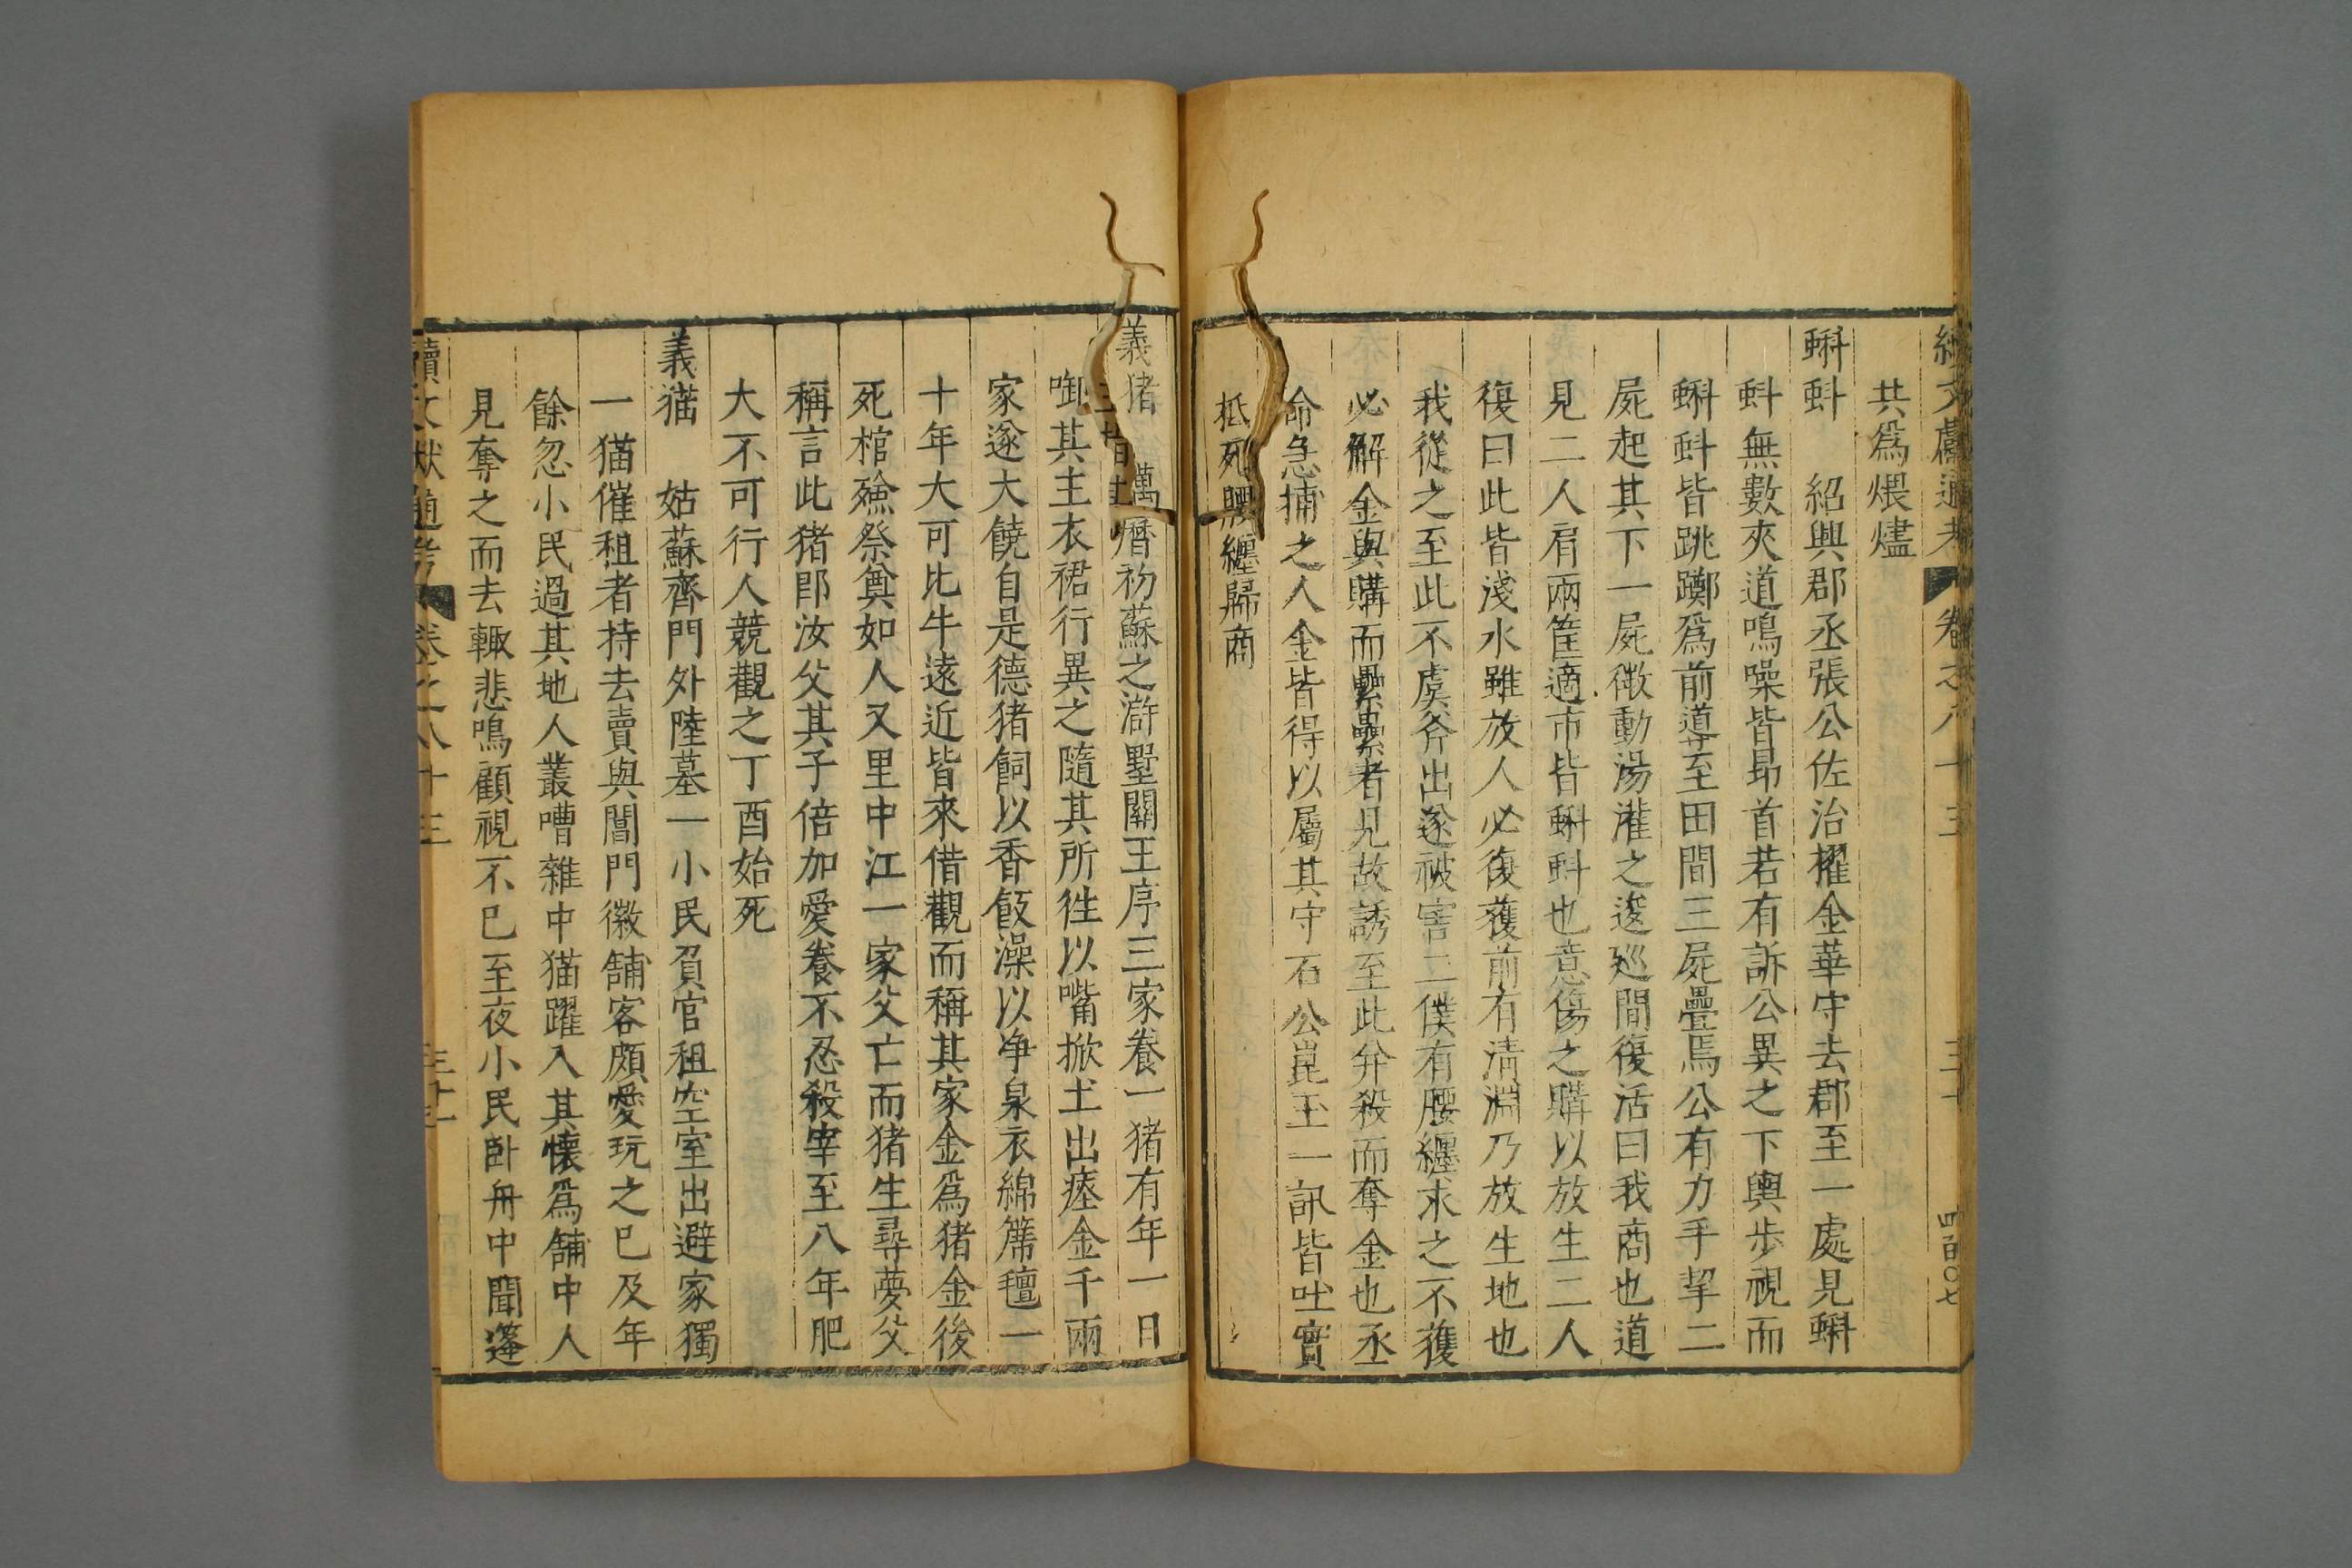 續文獻通考 卷之八十三 三十 四百〇七
共為煨燼
蝌蚪 紹興郡丞張公佐治擢金華守去郡至一處見蝌
蚪無數夾道鳴噪皆昻首若有訴公異之下輿步視而
蝌蚪皆跳躑為前導至田間三屍疊焉公有力手挈二
屍起其下一屍微動湯灌之逡廵間復活曰我商也道
見二人肩兩筐適市皆蝌蚪也意傷之購以放生二人
復曰此皆淺水雖放人必復獲前有清淵乃放生地也
我從之至此不虞斧出遂被害二僕有腰纏求之不獲
必解金與購而纍纍者見故誘至此并殺而奪金也丞
命急捕之人金皆得以屬其守石公崑玉一訊皆吐實
抵死腰纏歸商
義猪 萬曆初蘇之滸墅關王序三家養一猪有年一日
啣其主衣裙行異之隨其所徃以嘴掀土出瘞金千兩
家遂大饒自是德猪飼以香飯澡以净泉衣綿蓆氊一
十年大可比牛遠近皆來借觀而稱其家金為猪金後
死棺殮祭奠如人又里中江一家父亡而猪生尋夢父
稱言此猪即汝父其子倍加愛養不忍殺宰至八年肥
大不可行人競觀之丁酉始死
義猫 姑蘇齊門外陸墓一小民負官租空室出避家獨
一猫催租者持去賣與閶門徽舖客頗愛玩之已及年
餘忽小民過其地人叢嘈雜中猫躍入其懷為舖中人
見奪之而去輙悲鳴顧視不已至夜小民卧舟中聞篷
續文獻通考 卷之八十三 三十一